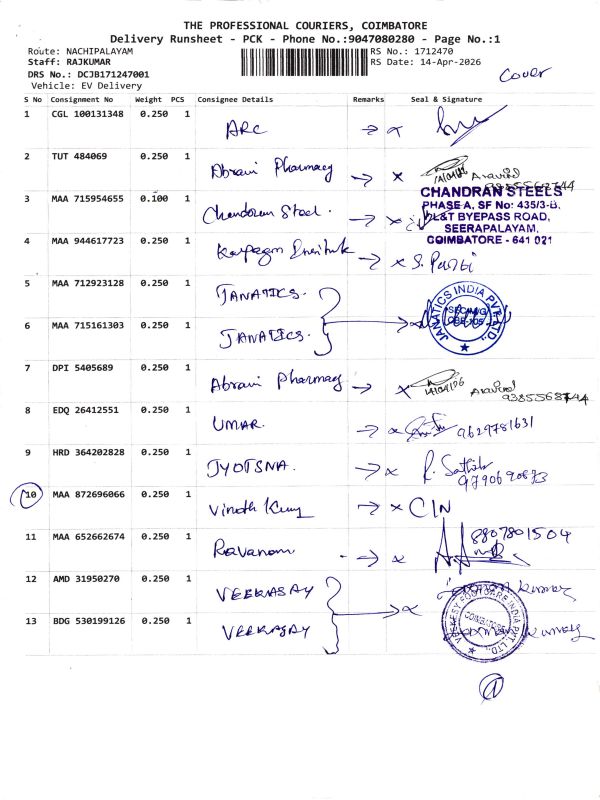 THE PROFESSIONAL COURIERS, COIMBATORE
Delivery Runsheet - PCK - Phone No.:9047080280 - Page No.:1
Route: NACHIPALAYAM RS No.: 1712470
Staff: RAJKUMAR RS Date: 14-Apr-2026
DRS No.: DCJB171247001
Vehicle: EV Delivery
Cover
S No Consignment No Weight PCS Consignee Details Remarks Seal & Signature
1 CGL 100131348 0.250 1 ARC
2 TUT 484069 0.250 1 Abrami Pharmacy Aravind
3 MAA 715954655 0.100 1 Chandran Steel.
CHANDRAN STEELS
PHASE-A, SF No: 435/3-B,
L&T BYEPASS ROAD,
SEERAPALAYAM,
COIMBATORE - 641 021
4 MAA 944617723 0.250 1 Karpagam
5 MAA 712923128 0.250 1 JANATICS.
JANATICS INDIA PVT. LTD.
6 MAA 715161303 0.250 1 JANATICS.
7 DPI 5405689 0.250 1 Abrami Pharmacy 14/04/26 Aravind
9385568744
8 EDQ 26412551 0.250 1 UMAR. 9629781631
9 HRD 364202828 0.250 1 JYOTSNA.
10 MAA 872696066 0.250 1 Vinoth CIN
11 MAA 652662674 0.250 1 8807801504
12 AMD 31950270 0.250 1 VEEKASAY
13 BDG 530199126 0.250 1 VEEKASAY
COIMBATORE